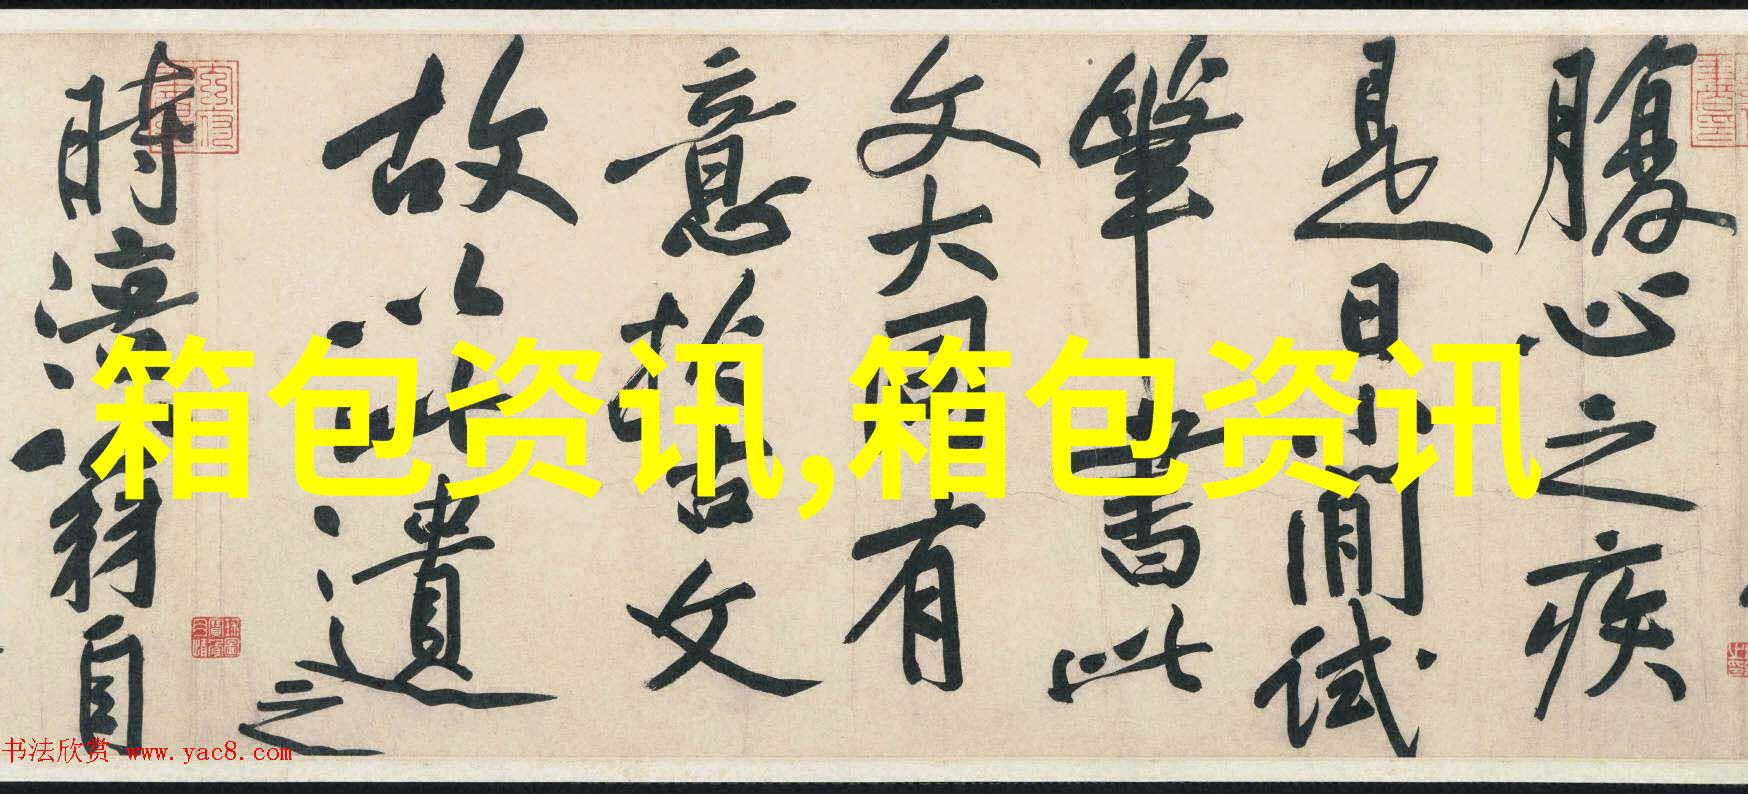 腹心之疾
是日小閒試
筆書此
文大同有
意於古文
故以此遺之
時涪翁自
箱包资讯,箱包资讯
书法欣赏 www.yac8.com